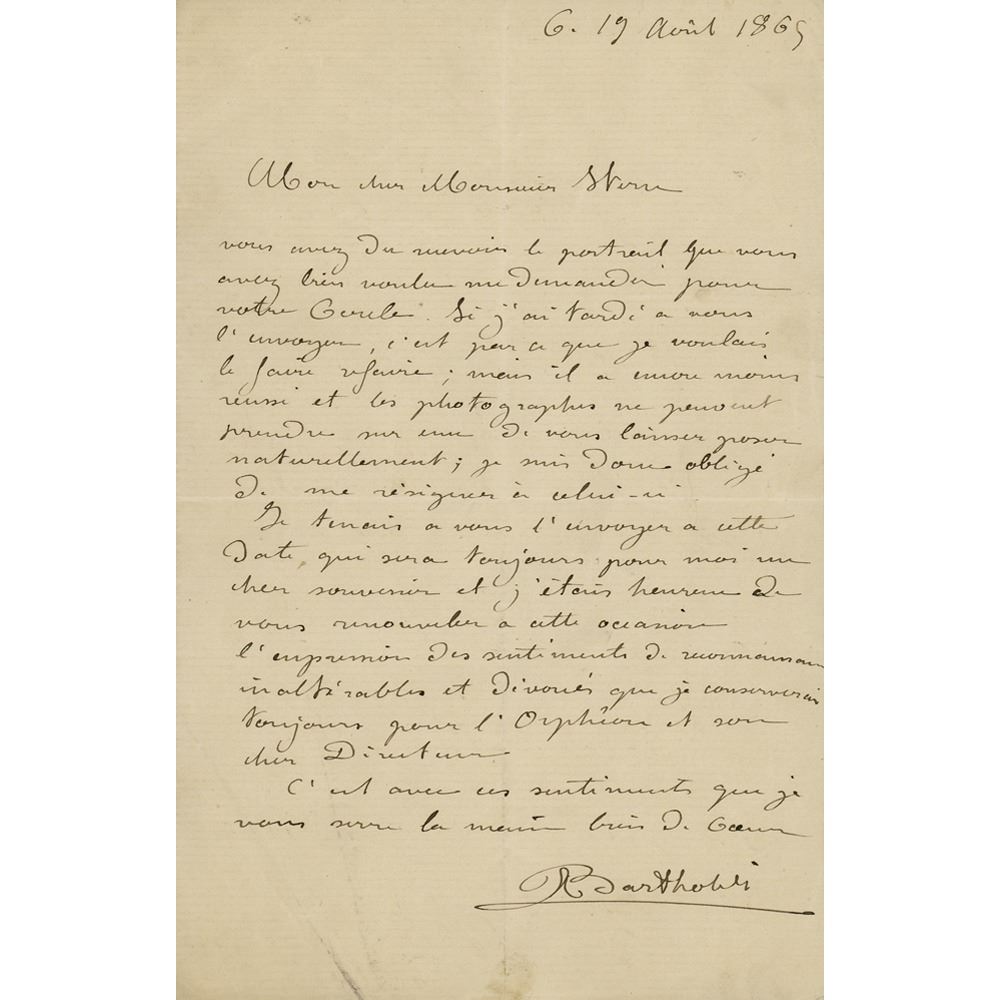 C. 19 Août 1865
Mon cher Monsieur Stern
vous avez du recevoir le portrait que vous
avez bien voulu me demander pour
votre Cercle. Si j'ai tardé a vous
l'envoyer, c'est parce que je voulais
le faire refaire; mais il a encore moins
réussi et les photographes ne peuvent
prendre sur eux de vous laisser poser
naturellement; je suis donc obligé
de me résigner à celui-ci
Je tenais a vous l'envoyer a cette
date qui sera toujours pour moi un
cher souvenir et j'étais heureux de
vous renouveler a cette occasion
l'expression des sentiments de reconnaissance
inaltérables et dévoués que je conserverai
toujours pour l'Orphéon et son
cher Directeur
C'est avec ces sentiments que je
vous serre la main bien de Coeur
Bartholdi